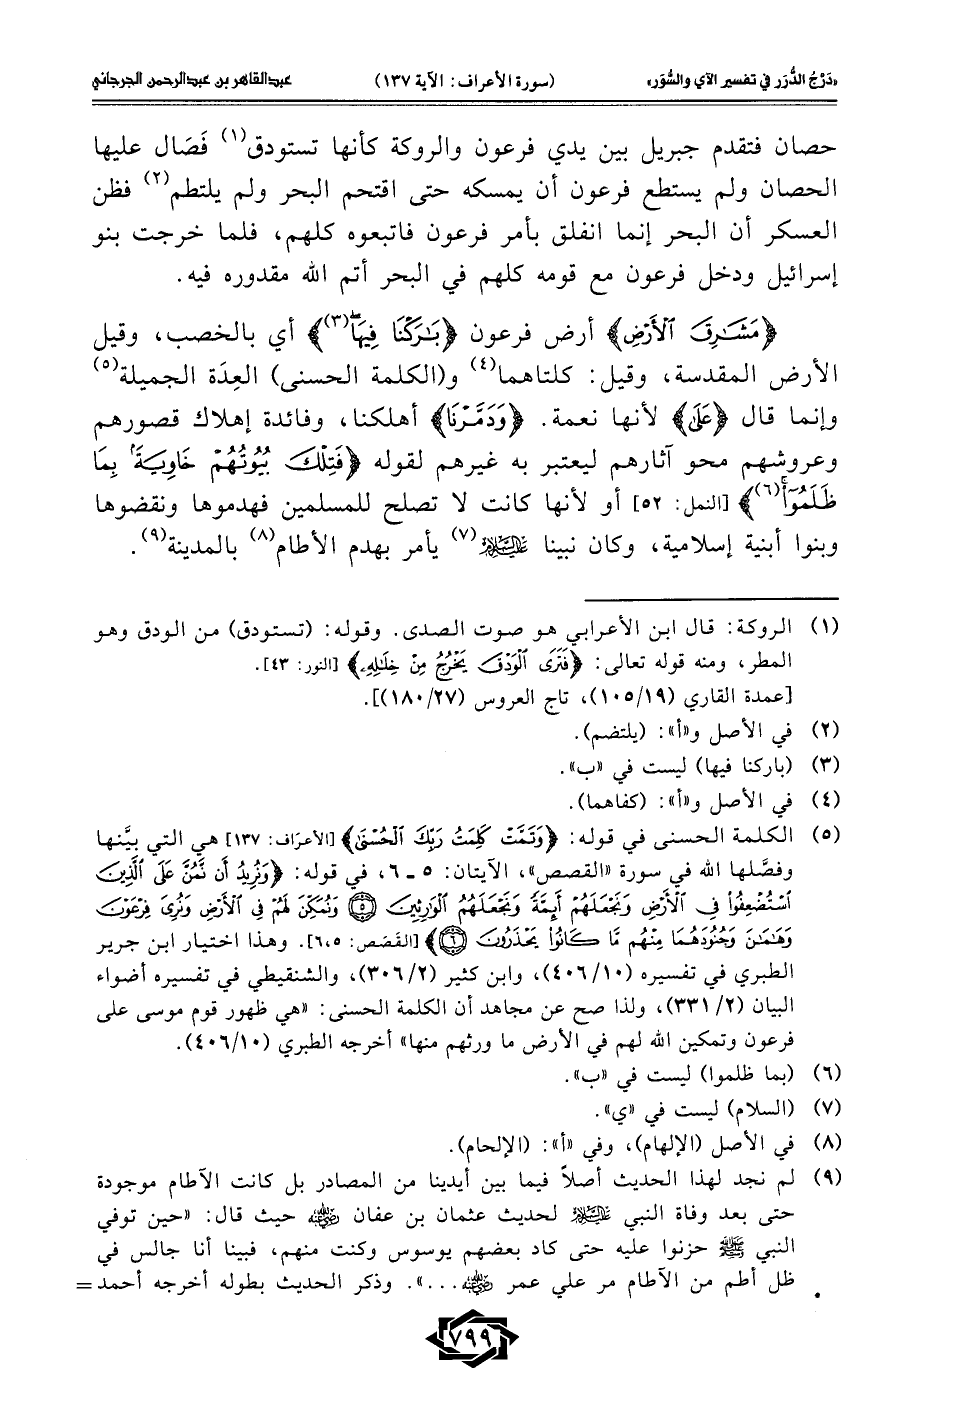 «دَرْجُ الدُّرَر في تفسير الآي والسُّوَر» (سورة الأعراف: الآية ١٣٧) عبدالقاهر بن عبدالرحمن الجرجاني
حصان فتقدم جبريل بين يدي فرعون والروكة كأنها تستودق(١) فَصَال عليها
الحصان ولم يستطع فرعون أن يمسكه حتى اقتحم البحر ولم يلتطم(٢) فظن
العسكر أن البحر إنما انفلق بأمر فرعون فاتبعوه كلهم، فلما خرجت بنو
إسرائيل ودخل فرعون مع قومه كلهم في البحر أتم الله مقدوره فيه.
﴿مَشَـٰرِقَ ٱلْأَرْضِ﴾ أرض فرعون ﴿بَـٰرَكْنَا فِيهَا(٣)﴾ أي بالخصب، وقيل
الأرض المقدسة، وقيل: كلتاهما(٤) و(الكلمة الحسنى) العِدَة الجميلة(٥)
وإنما قال ﴿عَلَىٰ﴾ لأنها نعمة. ﴿وَدَمَّرْنَا﴾ أهلكنا، وفائدة إهلاك قصورهم
وعروشهم محو آثارهم ليعتبر به غيرهم لقوله ﴿فَتِلْكَ بُيُوتُهُمْ خَاوِيَةًۢ بِمَا
ظَلَمُوٓا۟(٦)﴾ [النمل: ٥٢] أو لأنها كانت لا تصلح للمسلمين فهدموها ونقضوها
وبنوا أبنية إسلامية، وكان نبينا عليه السلام(٧) يأمر بهدم الأطام(٨) بالمدينة(٩).
(١) الروكة: قال ابن الأعرابي هو صوت الصدى. وقوله: (تستودق) من الودق وهو
المطر، ومنه قوله تعالى: ﴿فَتَرَى ٱلْوَدْقَ يَخْرُجُ مِنْ خِلَـٰلِهِۦ﴾ [النور: ٤٣].
[عمدة القاري (١٠٥/١٩)، تاج العروس (١٨٠/٢٧)].
(٢) في الأصل و«أ»: (يلتضم).
(٣) (باركنا فيها) ليست في «ب».
(٤) في الأصل و«أ»: (كفاهما).
(٥) الكلمة الحسنى في قوله: ﴿وَتَمَّتْ كَلِمَتُ رَبِّكَ ٱلْحُسْنَىٰ﴾ [الأعرَاف: ١٣٧] هي التي بيَّنها
وفصَّلها الله في سورة «القصص»، الآيتان: ٥ ـ ٦، في قوله: ﴿وَنُرِيدُ أَن نَّمُنَّ عَلَى ٱلَّذِينَ
ٱسْتُضْعِفُوا۟ فِى ٱلْأَرْضِ وَنَجْعَلَهُمْ أَئِمَّةً وَنَجْعَلَهُمُ ٱلْوَٰرِثِينَ ۝٥ وَنُمَكِّنَ لَهُمْ فِى ٱلْأَرْضِ وَنُرِىَ فِرْعَوْنَ
وَهَـٰمَـٰنَ وَجُنُودَهُمَا مِنْهُم مَّا كَانُوا۟ يَحْذَرُونَ ۝٦﴾ [القَصَص: ٦،٥]. وهذا اختيار ابن جرير
الطبري في تفسيره (٤٠٦/١٠)، وابن كثير (٣٠٦/٢)، والشنقيطي في تفسيره أضواء
البيان (٣٣١/٢)، ولذا صح عن مجاهد أن الكلمة الحسنى: «هي ظهور قوم موسى على
فرعون وتمكين الله لهم في الأرض ما ورثهم منها» أخرجه الطبري (٤٠٦/١٠).
(٦) (بما ظلموا) ليست في «ب».
(٧) (السلام) ليست في «ي».
(٨) في الأصل (الإلهام)، وفي «أ»: (الإلحام).
(٩) لم نجد لهذا الحديث أصلاً فيما بين أيدينا من المصادر بل كانت الآطام موجودة
حتى بعد وفاة النبي عليه السلام لحديث عثمان بن عفان رضي الله عنه حيث قال: «حين توفي
النبي ﷺ حزنوا عليه حتى كاد بعضهم يوسوس وكنت منهم، فبينا أنا جالس في
ظل أطم من الآطام مر علي عمر رضي الله عنه...». وذكر الحديث بطوله أخرجه أحمد =
٧٩٩